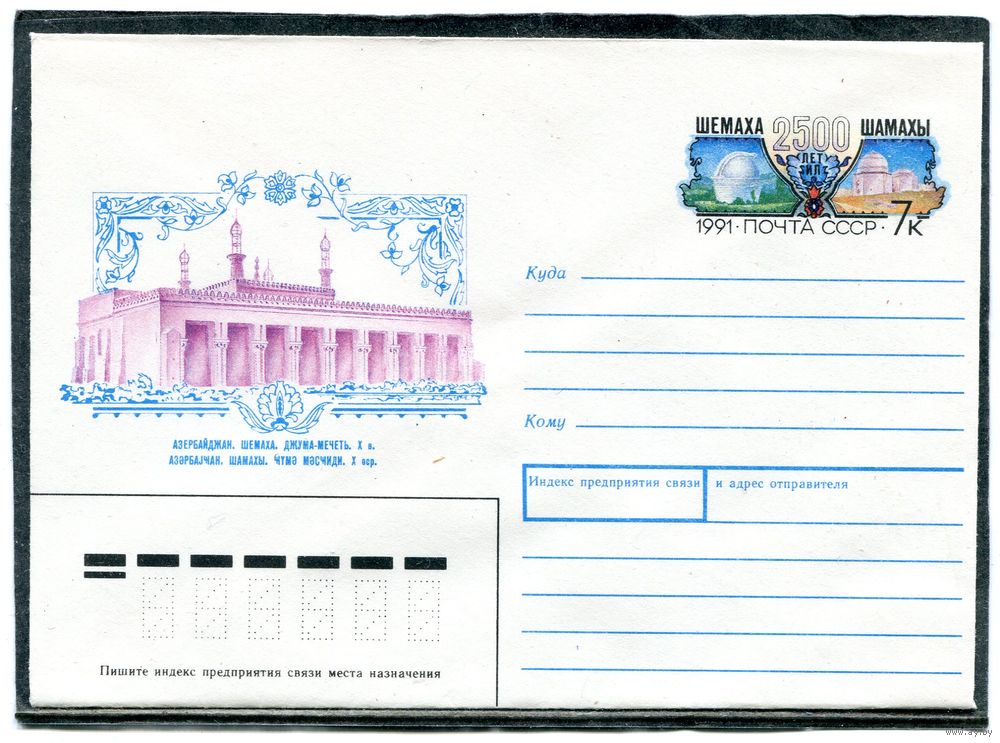 ШЕМАХА 2500 ШАМАХЫ
ЛЕТ
ИЛ
1991 · ПОЧТА СССР · 7к
Куда
Кому
АЗЕРБАЙДЖАН. ШЕМАХА. ДЖУМА-МЕЧЕТЬ. X в.
АЗӘРБАЈҸАН. ШАМАХЫ. ҸҮМӘ МӘСЧИДИ. X әср.
Индекс предприятия связи и адрес отправителя
Пишите индекс предприятия связи места назначения
www.ay.by